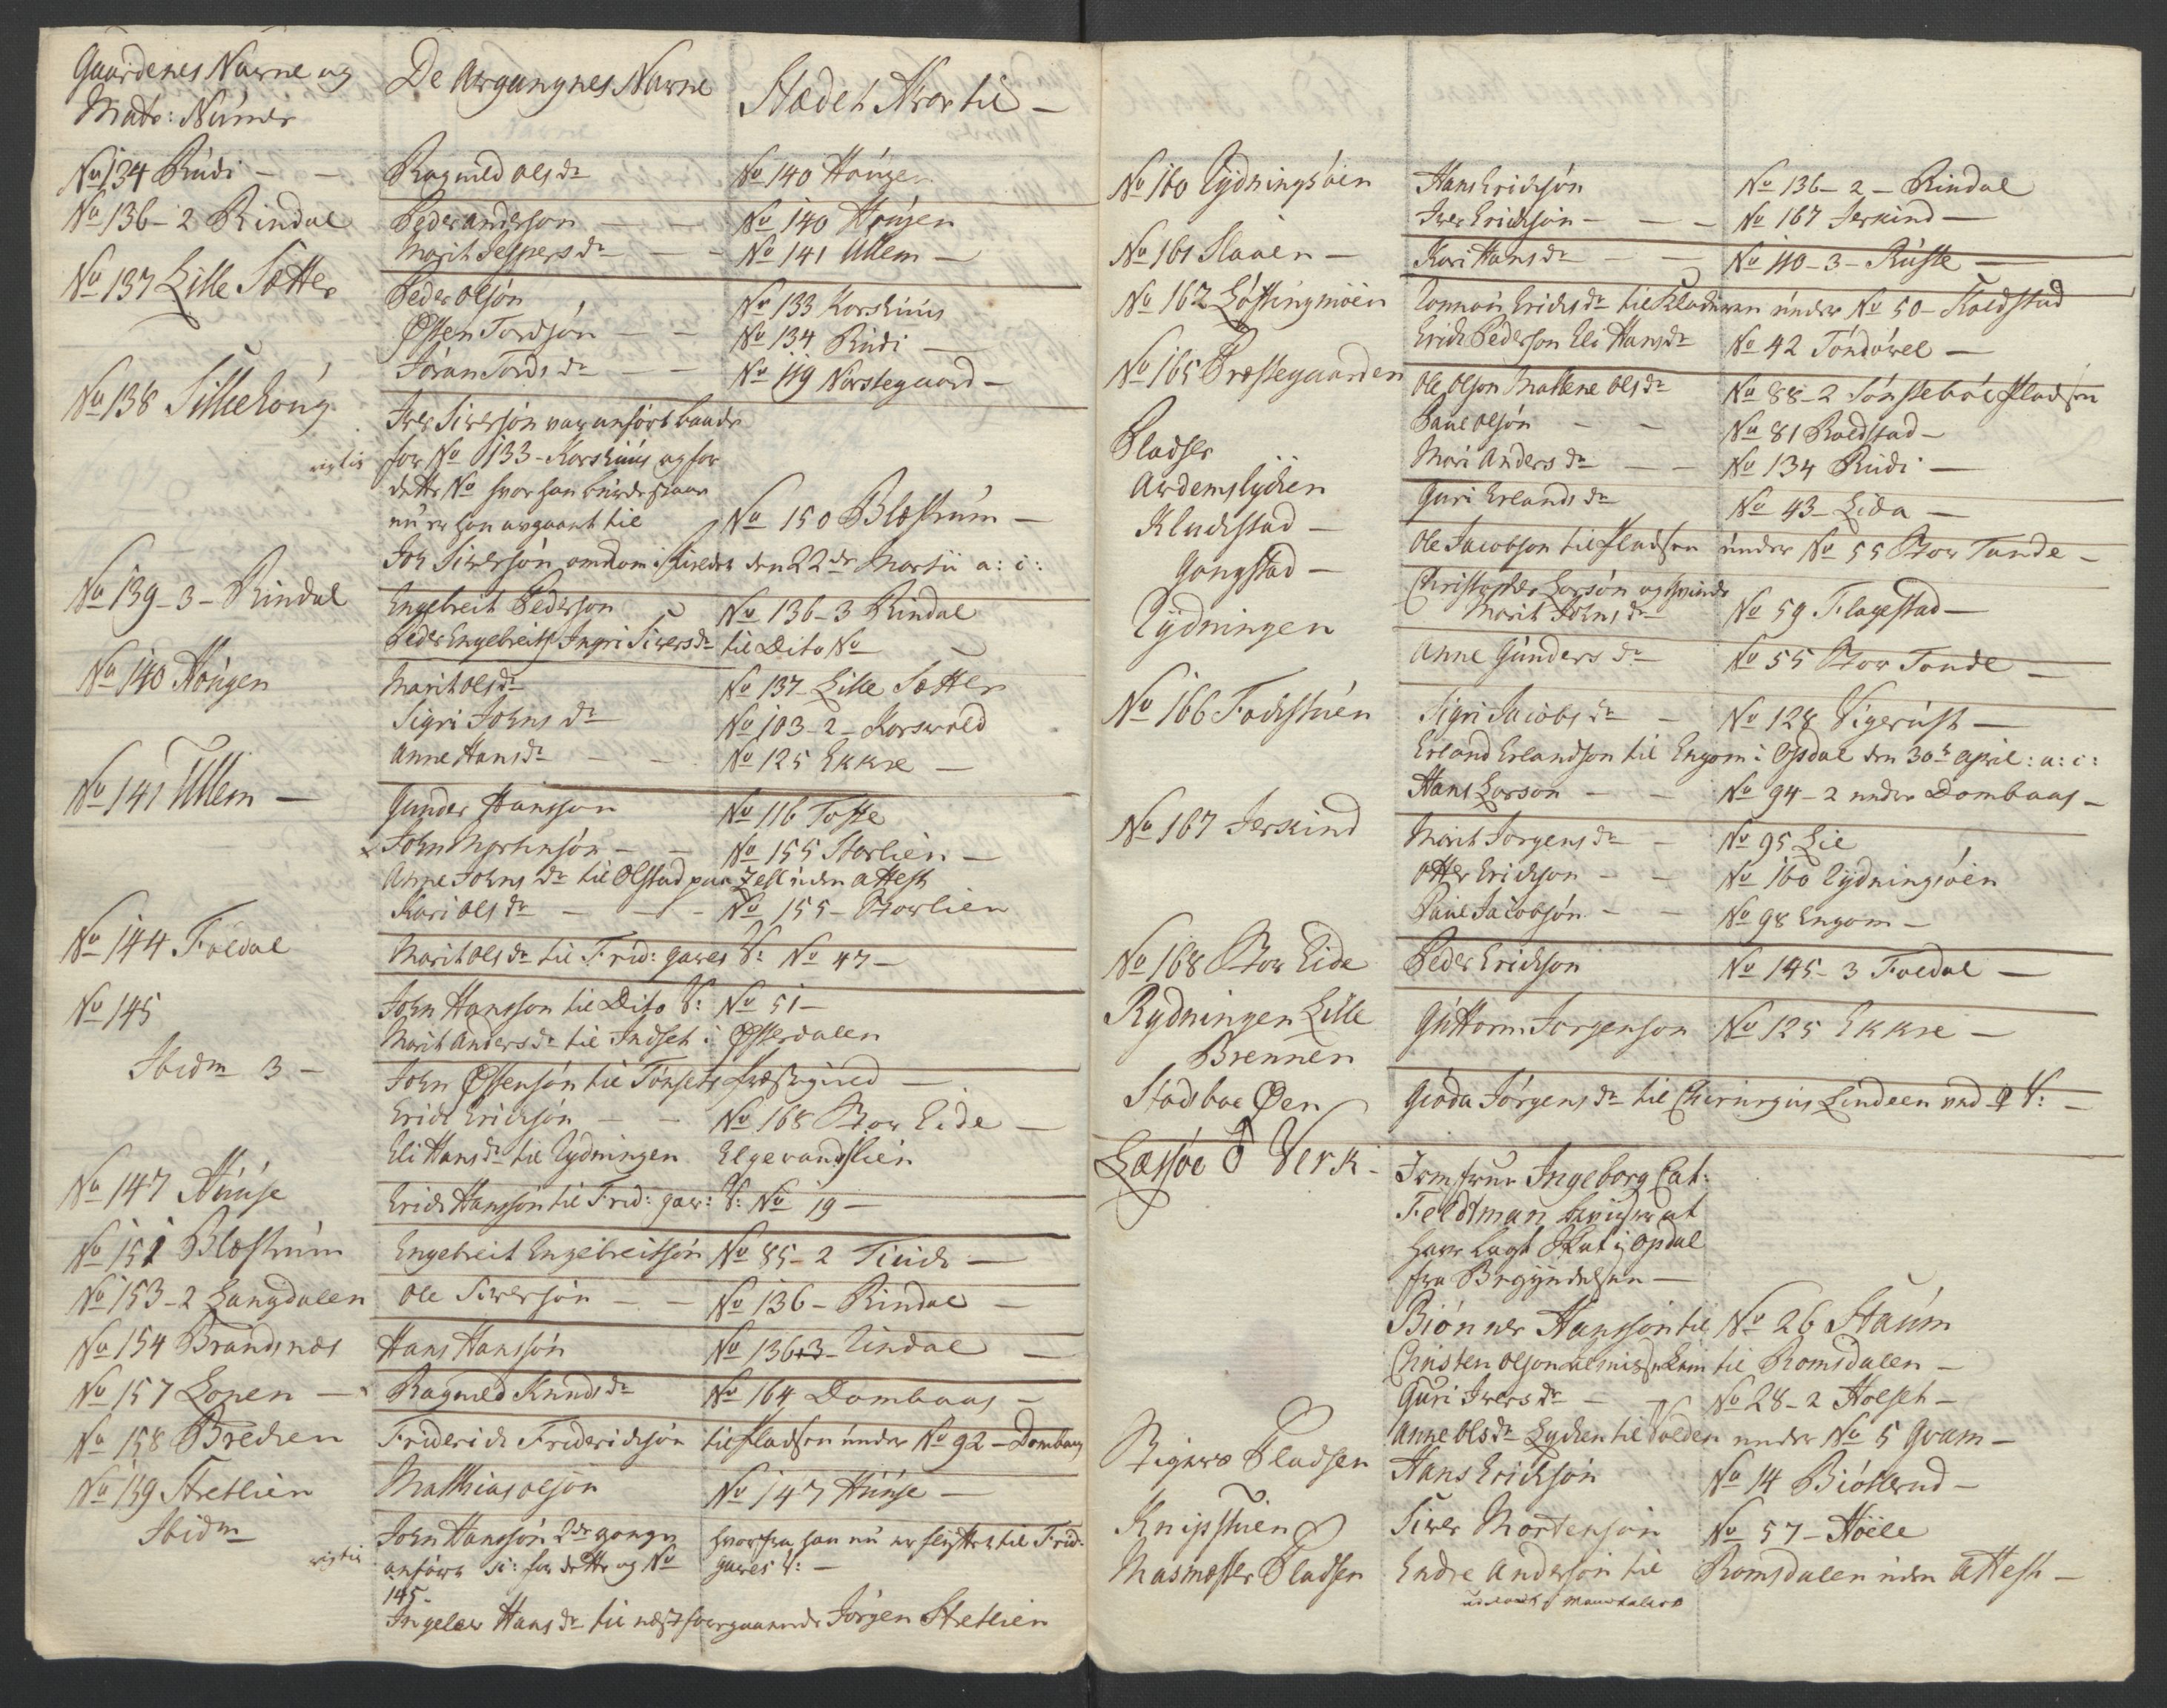 Gaardenes Navne og De Avgangnes Navne Stædet Hvor til -
Matr: Numer
No 134 Rudi - - Ragnild Olsdr No 140 Hougen
No 136-2 Rindal Peder Anderson - - No 140 Hougen
Marit Jespersdr - - No 141 Ullem -
No 137 Lille Sætter Peder Olsøn No 133 Korshuus
Østen Tordsøn - - No 134 Rudi -
Jøran Tordsdr - - No 119 Norstegaard -
No 138 Sillehoug Iver Siversøn var anført baade
rigtig for No 133 - Korshuus og for
dette No hvor han burde staae
nu er han avgaaet til No 150 Blæstrum -
Joh Siversøn omkom i Fieldet den 22de Martii a: c:
No 139-3- Rindal Engebreit Pederson No 136-3 Rindal
Peder Engebreits Ingri Siversdr til Dito No -
No 140 Hougen Marit Olsdr No 137 Lille Sætter
Sigri Johnsdr No 103-2- Korswold
Anne Hansdr - - No 125 Ekkre -
No 141 Ullem - Gunder Hansson No 116 Tofte
x John Mortensøn - - No 155 Storlien -
Anne Johnsdr til Olstad paa Zell uden attest
Kari Olsdr - - - No 155 - Storlien
No 144 Foldal Marit Olsdr til Frid: gaves V: No 47 -
No 145 John Hansson til Dito V: No 51 -
Marit Andersdr til Indset i Østerdalen
Ibidm 3 - John Østensøn til Tønsets Præstegield -
Erich Ericksøn - - No 168 Stor Eide -
Eli Hansdr til Rydningen Elgevandslien
No 147 Huuse Erich Hanssøn til Frid: gav: V: No 19 -
No 151 Blæstrum Engebreit Engebreitsøn No 85-2 Tiuch -
No 153-2 Langdalen Ole Siversøn - - No 136 - Rindal -
No 154 Brandsnæs Hans Hanssøn No 136+3- Rindal -
No 157 Lonen - Ragnild Knudsdr No 164 Dombaas -
No 158 Brecken Friderich Friderichsøn til Pladsen under No 92 - Dombaas
No 159 Stretlien Mathias Olsøn No 147 Huuse -
Ibidm John Hanssøn 2de gange hvorfra han nu er flÿttet til Frid:
rigtig anført si: for dette og No gaves V: -
145.
Ingeler Hansdr til næst foregaaende Jørgen Stretlien
No 160 Rydningsøen Hans Ericksøn No 136-2- Rindal
Iver Ericksøn - - - No 167 Jerkind -
No 161 Slaaen - Kari Hansdr - - No 110-3- Ruste -
No 162 Løftingmoen Ronnau Erichsdr til Pladsen under No 50 - Koldstad
Erich Pederson Eli Hansdr No 42 Tøndøvel -
No 165 Præstegaarden Ole Olson Mallene Olsdr No 88-2 Tønstebøe Pladsen
Poul Olsøn - - No 81 Roldstad -
Pladser Mari Andersdr - - No 134 Rudi -
Ardemslychen Guri Erlandsdr No 43 - Lida -
Kluckstad - Ole Jacobson til Pladsen under No 55 Stor Tande -
Gangstad - Christopher Larsøn og qvinde
Marit Johnsdr No 59 Flagestad -
Rydningen Anne Gundersdr No 55 Stor Tande -
No 166 Fockstuen Sigri Jacobsdr - No 128 Vigerust -
Erland Erlandson til Engom i Opdal den 30te April: a: c:
Hans Larson - - No 94-2 under Dombaas -
No 167 Jerkind Marit Jørgensdr - No 95 Lie
Otter Erickson - - No 160 Rydningsøen
Poul Jacobsøn - - No 98 Engom -
No 168 Stor Eide Peder Erickson No 145-3 Foldal -
Rydningen Lille Guttorm Jorgenson No 125 Ekkre -
Brennen
Stadsbue Øen Giøda Jørgensdr til Chirurgus Lindeen ved V: -
Læssøe Verk - Jomfrue Ingeborg Cat:
Feldtman
have lagt Skat i Opdal
fra Begÿndelsen -
Biønner Hanssøn til No 26 Staum
Christen Olson til Romsdalen -
Guri Iversdr - - No 28-2 Holset -
Anne Olsdr Lychen til Volden under No 5 Qvam -
Pladsen Hans Ericksøn No 14 Biøkerud -
Knipstuen Siver Mortensøn No 57 - Høële
Masmester Pladsen Endre Anderson til Romsdalen uden attest -